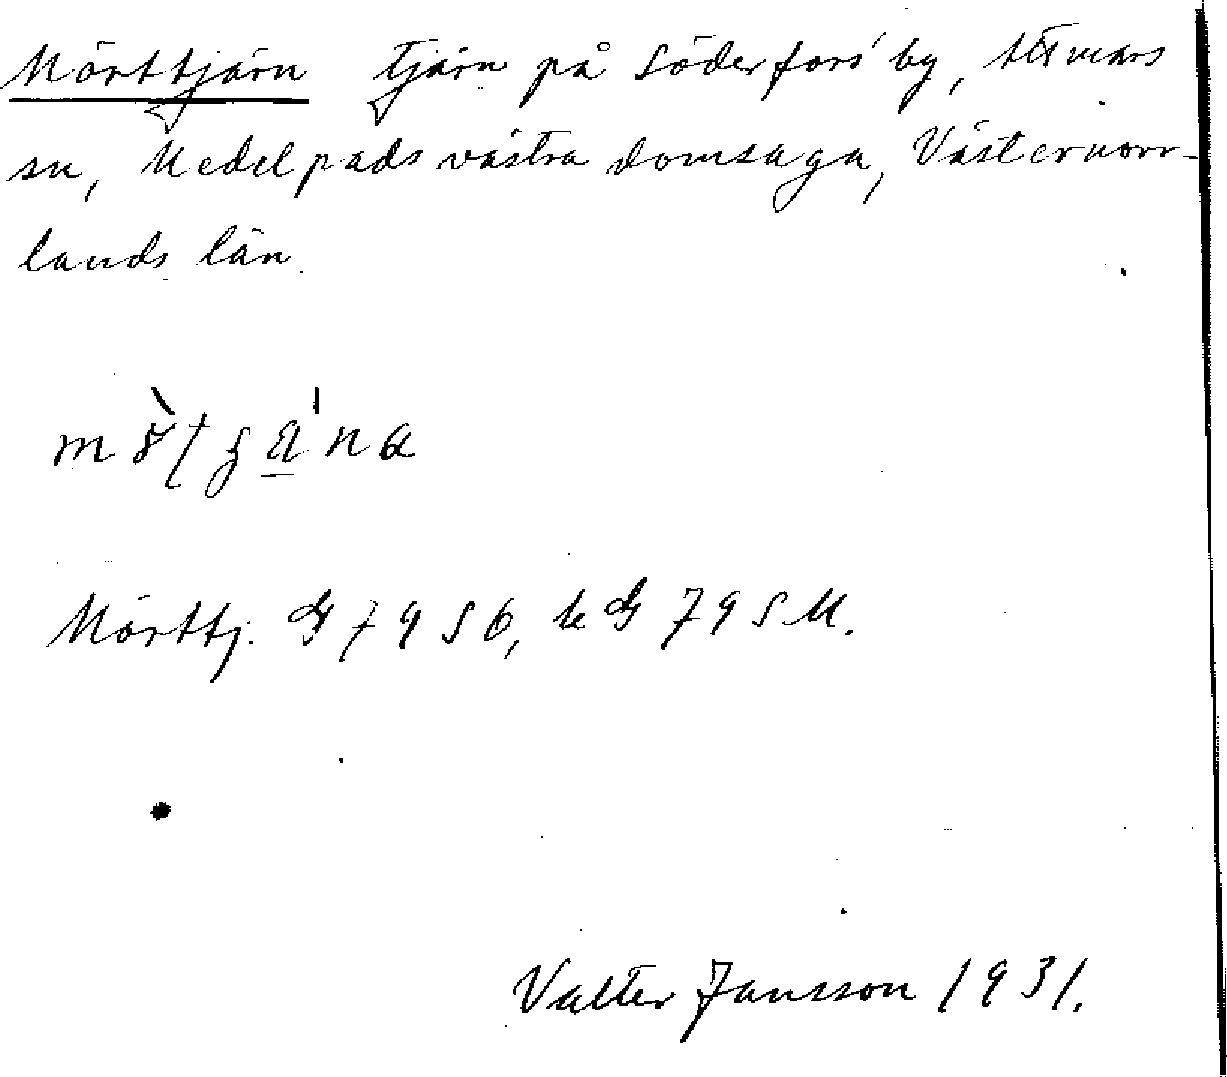 Mörttjärn Tjärn på Söderfors' by, Attmars
sn, Medelpads västra domsaga, Västernorr-
lands län.
Mörttj. G 79 S6, kG 79 SM.
Valter Jansson 1931.